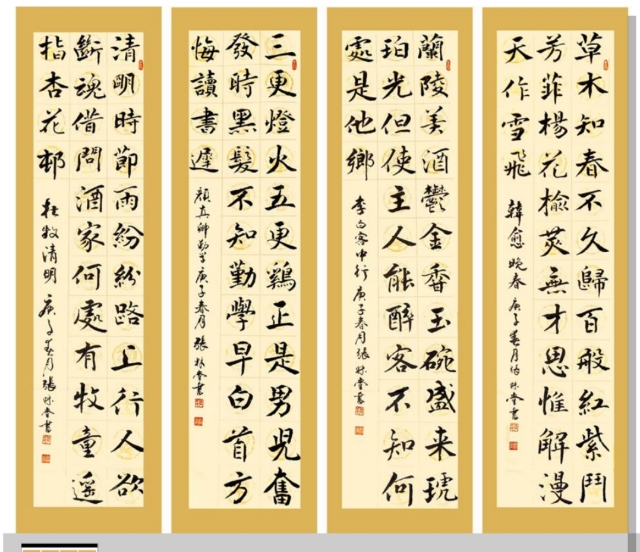 草木知春不久歸百般紅紫鬥
芳菲楊花榆莢無才思惟解漫
天作雪飛 韓愈晚春 庚子春月
蘭陵美酒鬱金香玉碗盛来琥
珀光但使主人能醉客不知何
處是他鄉 李白客中行 庚子春月張
三更燈火五更鷄正是男兒奮
發時黑髮不知勤學早白首方
悔讀書遲 顔真卿勸学 庚子春月張
清明時節雨紛紛路上行人欲
斷魂借問酒家何處有牧童遥
指杏花邨 杜牧清明 庚子春月張